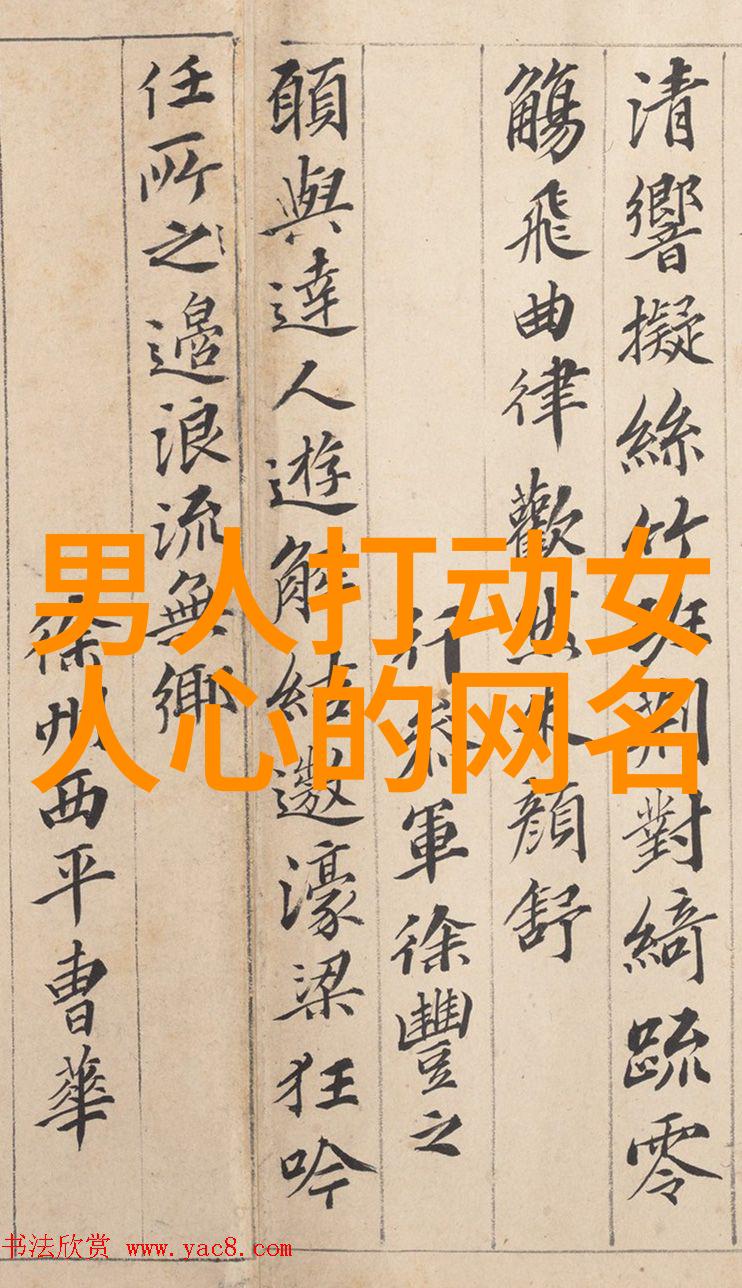 清響擬絲竹班荆對綺䟽零
觴飛曲律歡然朱顏舒
行叅軍徐豐之
願與達人遊解結遨濠梁狂吟
任所之邉浪流無鄉
徐州西平曹華
男人打动女
人心的网名
书法欣赏 www.yac8.com